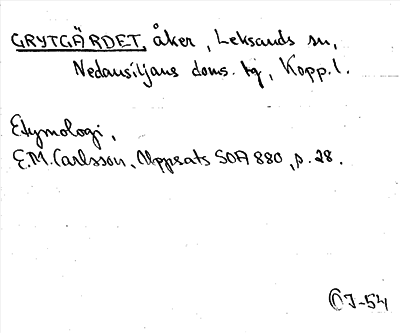 GRYTGÄRDET, åker, Leksands sn,
Nedansiljans doms. tg, Kopp. l.
Etymologi,
E.M. Carlsson, Uppsats SOA 880, p. 28.
J-54